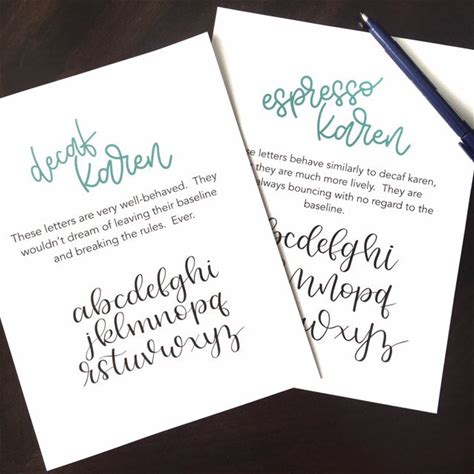 decaf
karen
These letters are very well-behaved. They
wouldn't dream of leaving their baseline
and breaking the rules. Ever.
abcdefghi
jklmnopq
rstuvwxyz
espresso
karen
letters behave similarly to decaf karen,
they are much more lively. They are
always bouncing with no regard to the
baseline.
bcdefghi
mnopq
uvwxyz